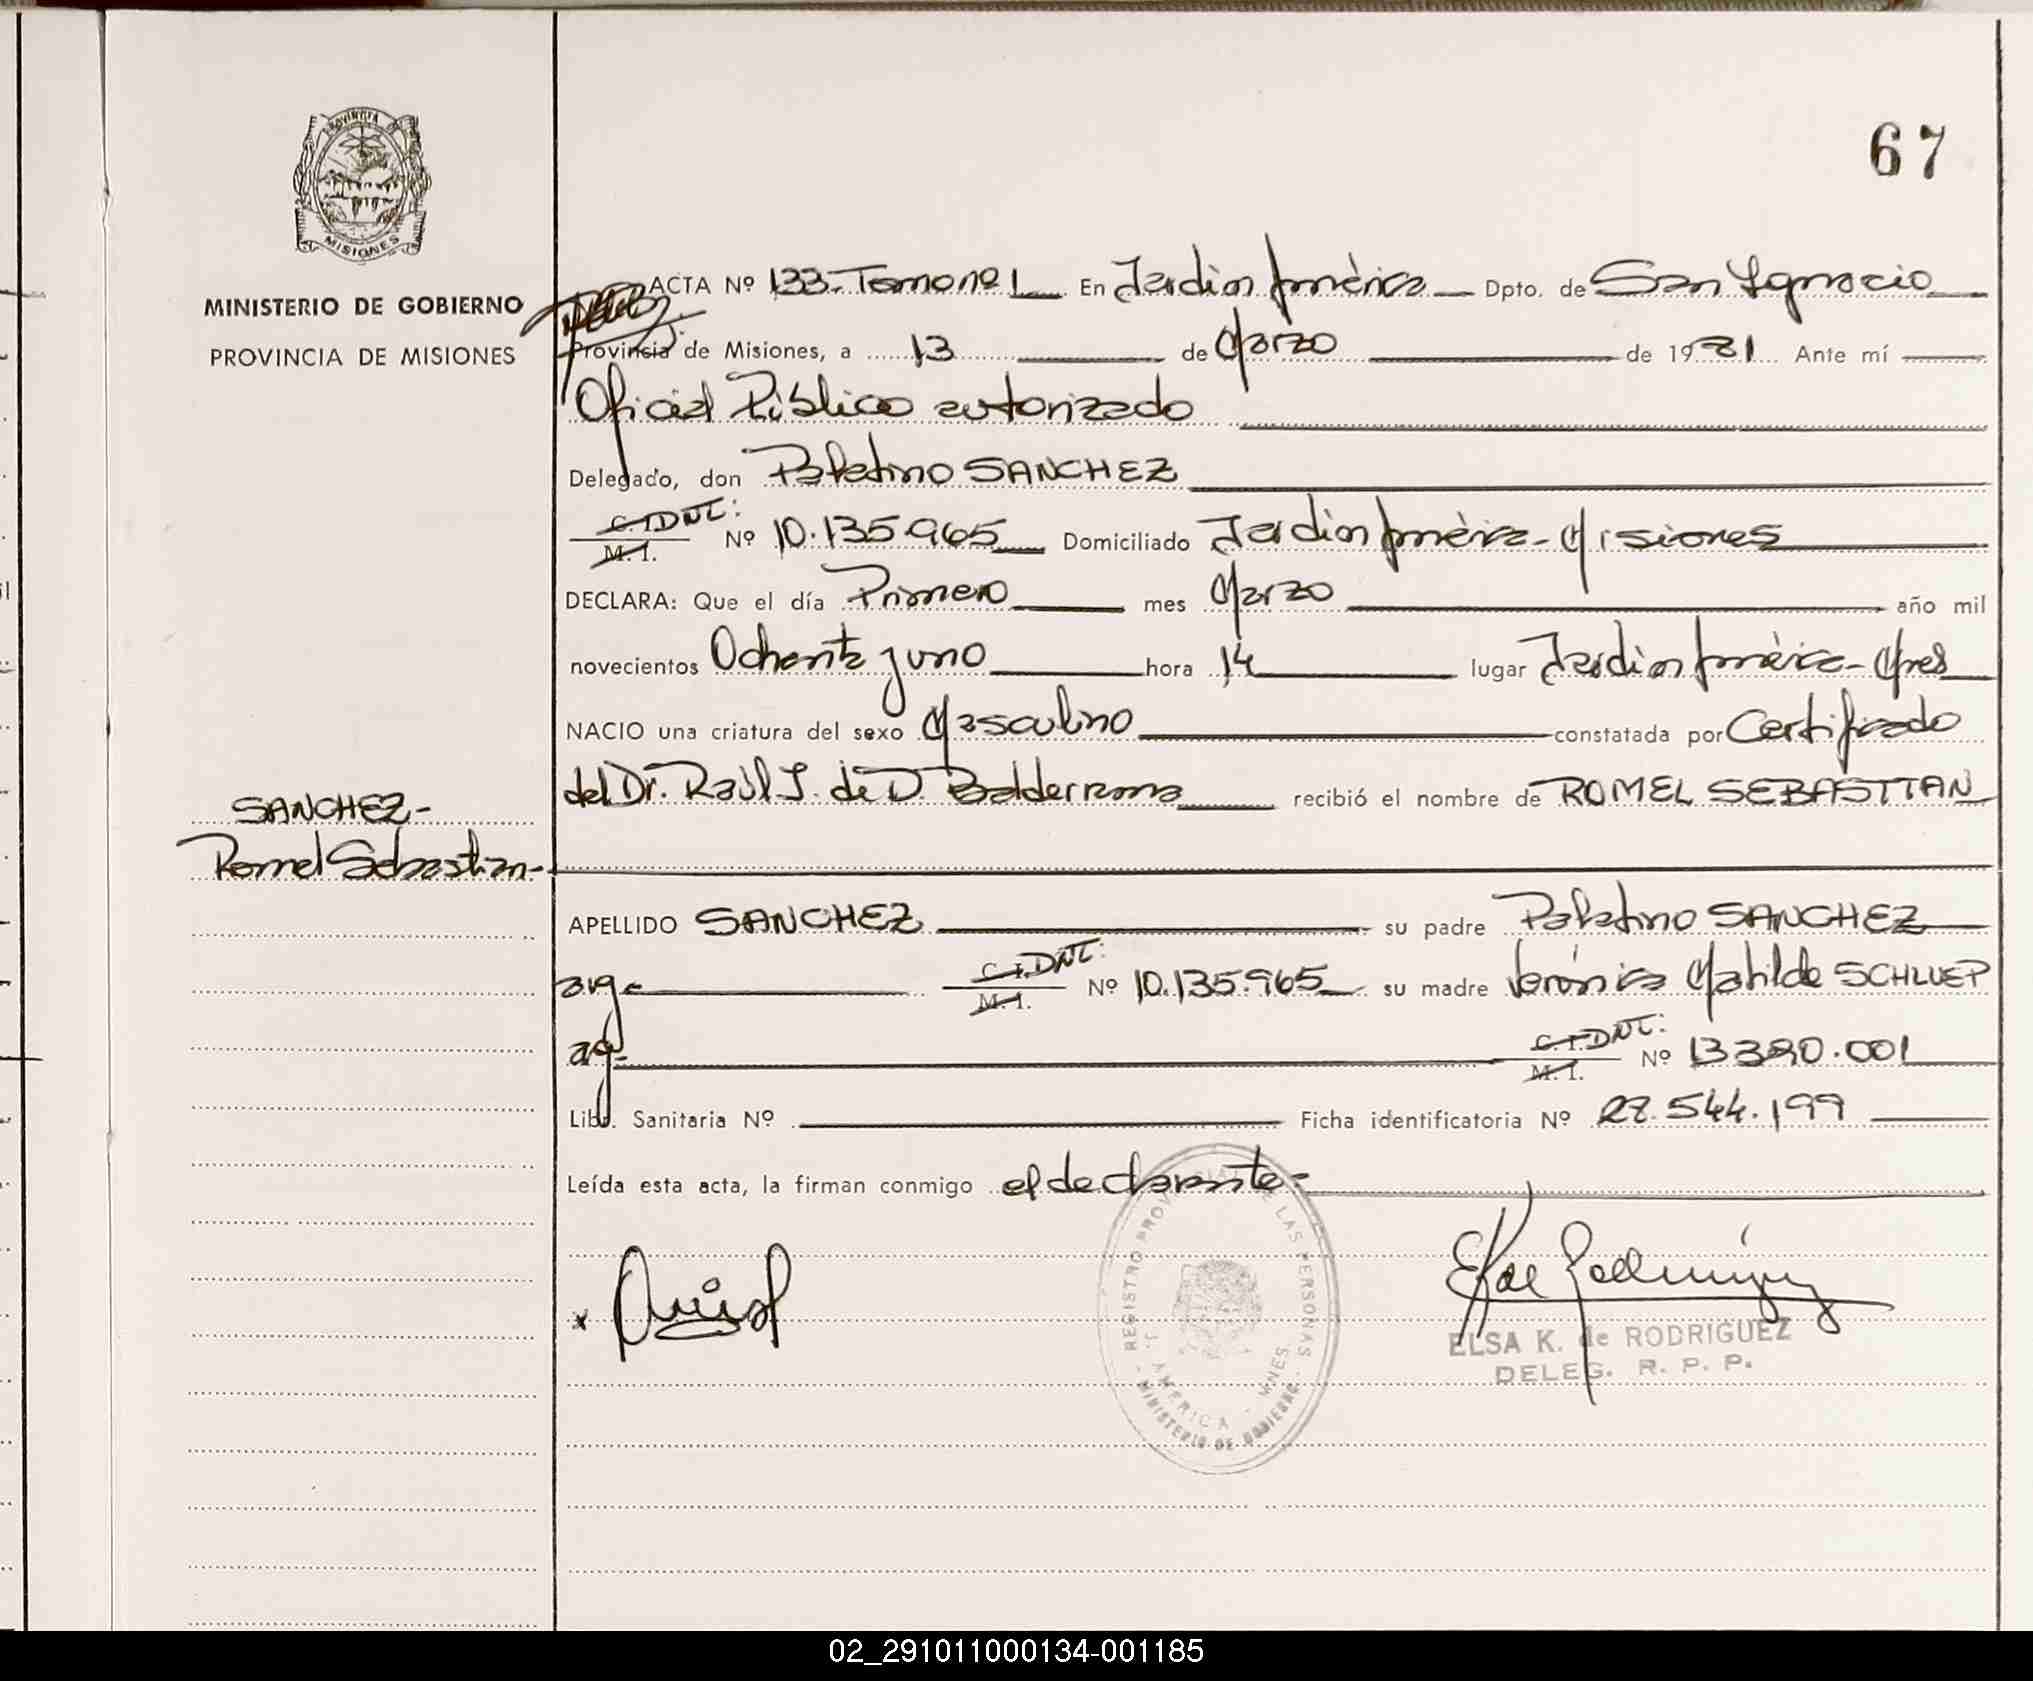 67
PROVINCIA
MISIONES
MINISTERIO DE GOBIERNO
PROVINCIA DE MISIONES
ACTA Nº 133-Tomo nº 1 En Jardin América Dpto. de San Ignacio
Provincia de Misiones, a 13 de Marzo de 1981 Ante mí
Oficial Público autorizado
Delegado, don Palatino SANCHEZ
C.I. DNI: M.I. Nº 10.135.965 Domiciliado Jardin América - Misiones
DECLARA: Que el día Primero mes Marzo año mil
novecientos Ochenta y uno hora 14 lugar Jardin América - Mnes
NACIO una criatura del sexo Masculino constatada por Certificado
del Dr. Raúl J. de D. Balderrama recibió el nombre de ROMEL SEBASTIAN
SANCHEZ-
Romel Sebastian-
APELLIDO SANCHEZ su padre Palatino SANCHEZ
arg- C.I. DNI: M.I. Nº 10.135.965 su madre Verónica Matilde SCHLUEP
ag- C.I. DNI: M.I. Nº 13380.001
Libr. Sanitaria Nº Ficha identificatoria Nº 28.544.199
Leída esta acta, la firman conmigo el declarante-
x
REGISTRO PROVINCIAL DE LAS PERSONAS
J. AMERICA - MNES.
MINISTERIO DE GOBIERNO
Elsa Rodríguez
ELSA K. de RODRIGUEZ
DELEG. R. P. P.
02_291011000134-001185